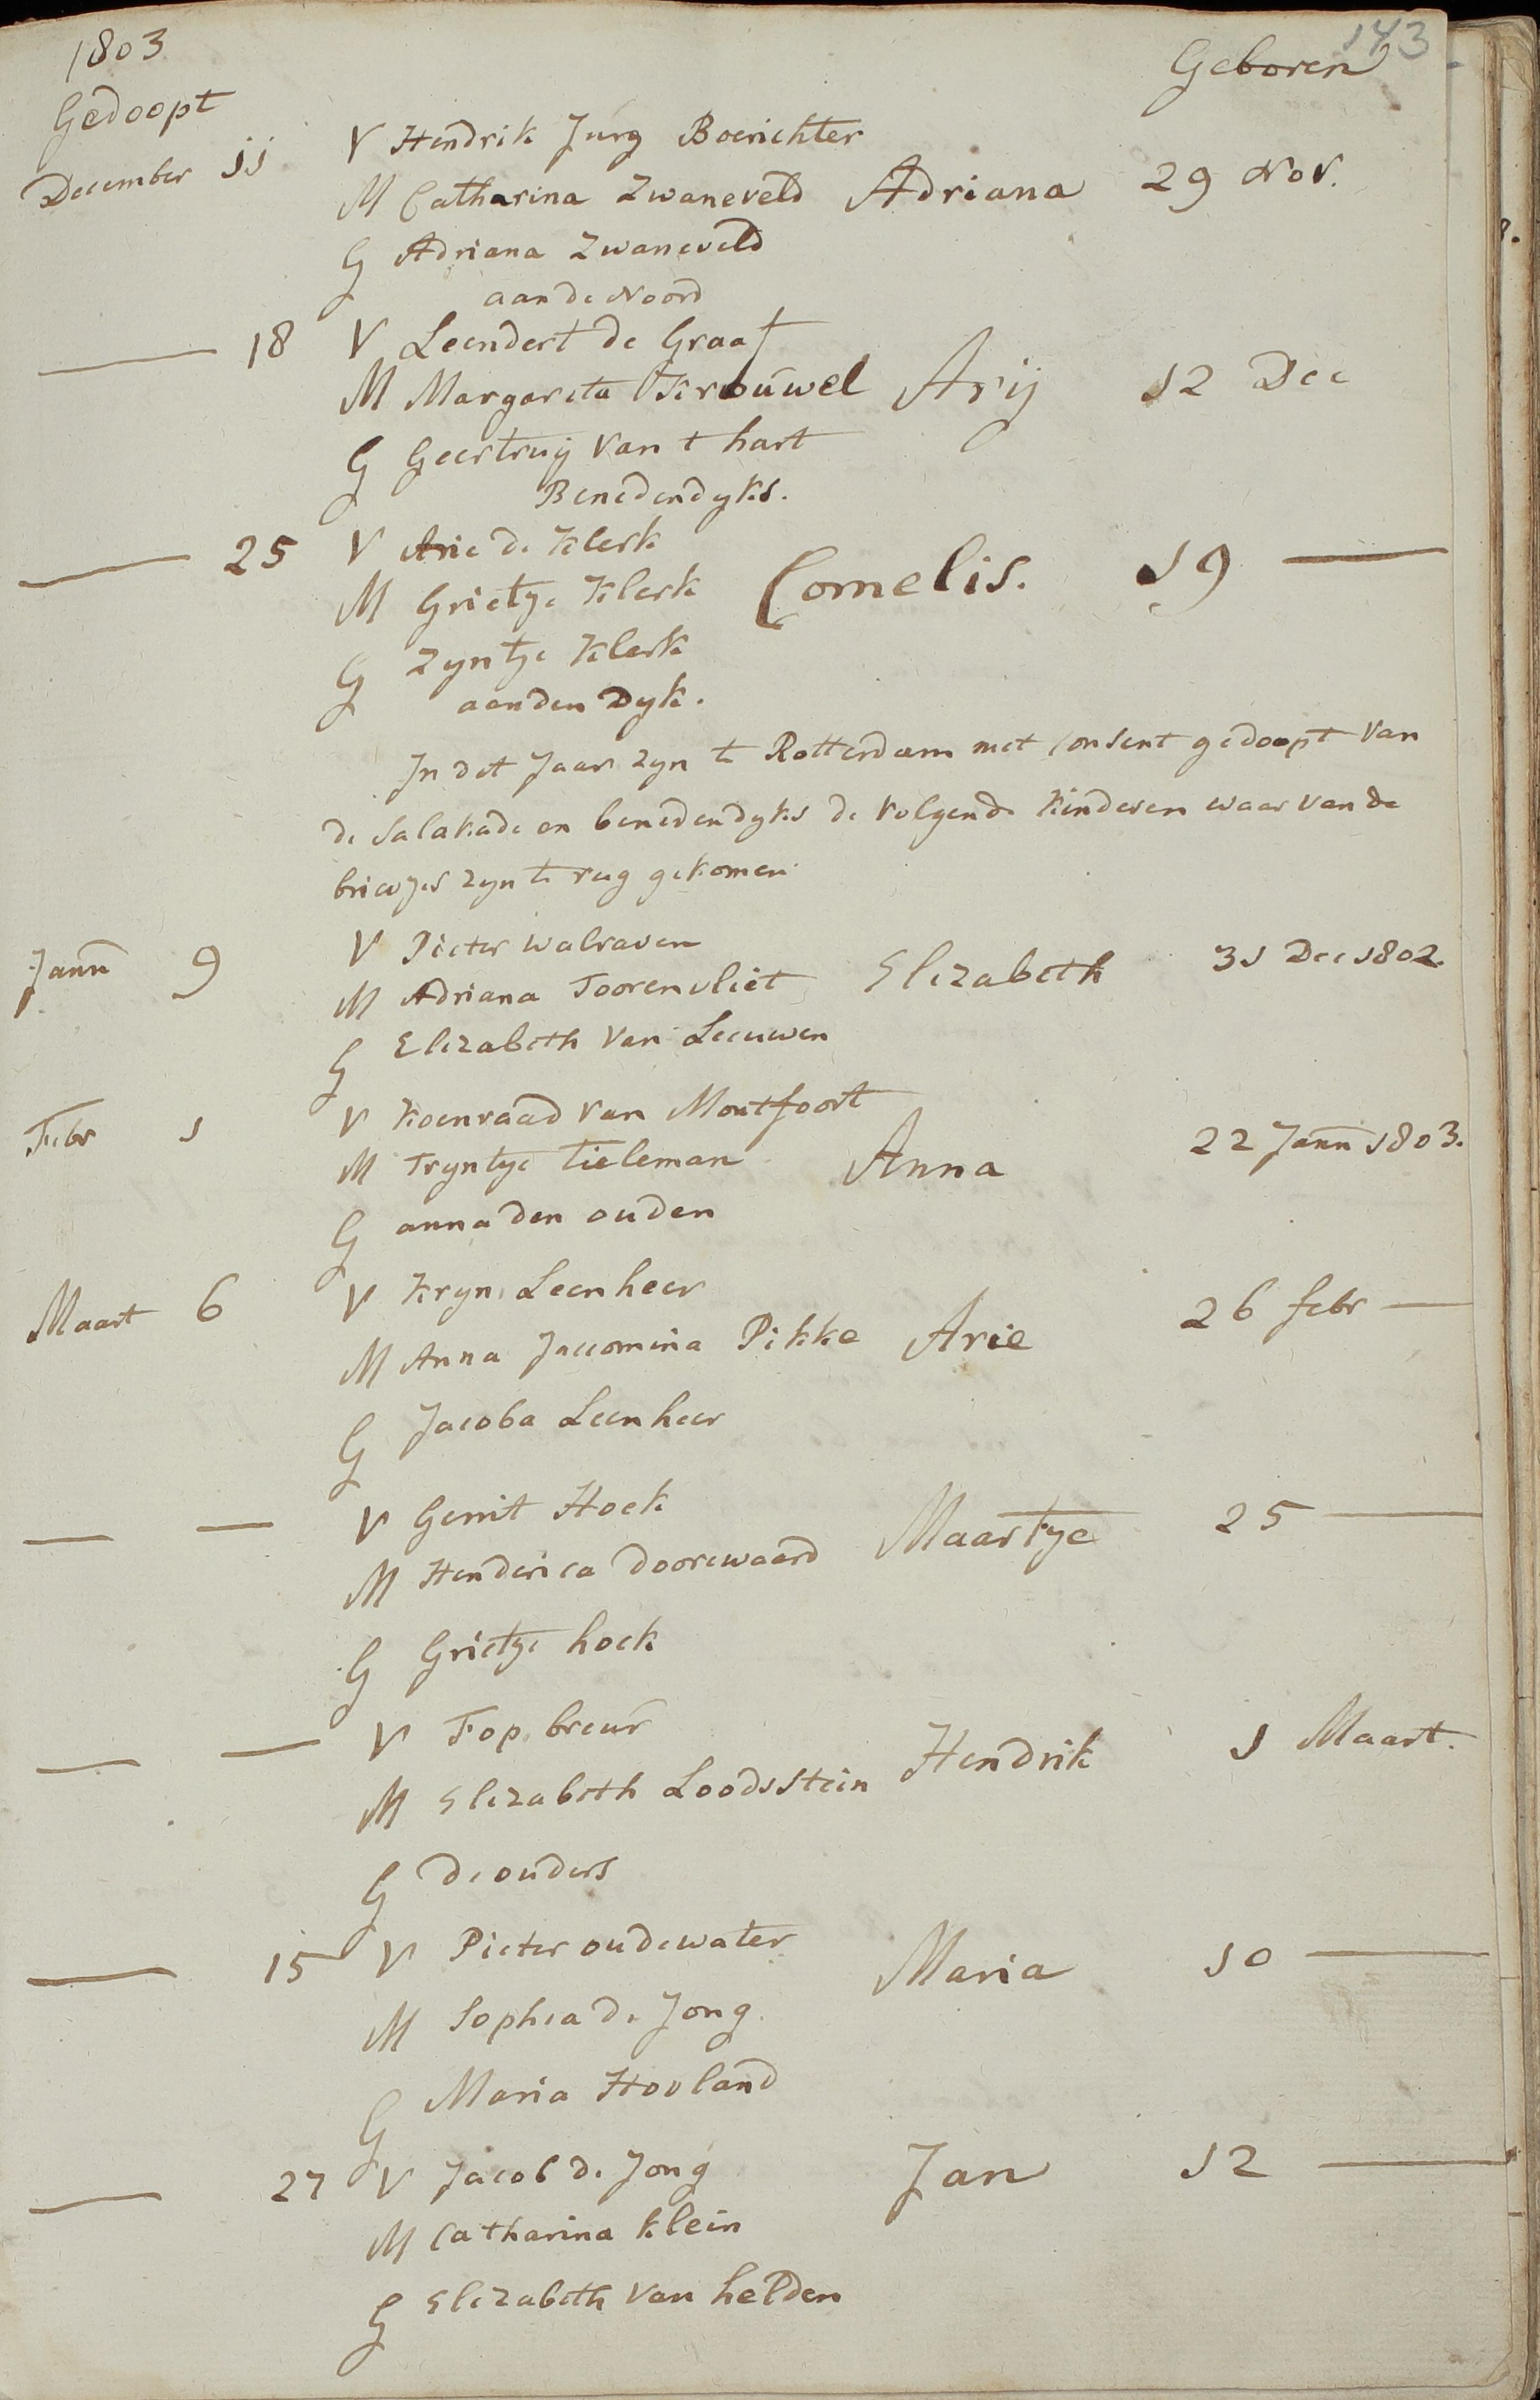 143
1803
Geboren
Gedoopt
December 11 V Hendrik Jurg Boerichter
M Catharina Zwaneveld Adriana 29 Nov.
G Adriana Zwaneveld
aan de Noord
— 18 V Leendert de Graaf
M Margareta Krouwel Arij 12 Dec
G Geertruij van t hart
Benedendyks.
— 25 V Arie de Klerk
M Grietje Klerk Cornelis. 19 —
G Zyntje Klerk
aanden Dyk.
In dit Jaar zyn te Rotterdam met consent gedoopt van
de Salakade en benedendyks de volgende kinderen waar van de
briefjes zyn te rug gekomen
Jann 9 V Pieter walraven
M Adriana Toorenvliet Elizabeth 31 Dec 1802.
G Elizabeth van Leeuwen
Febr 1 V Koenraad van Montfoort
M Tryntje Tieleman Anna 22 Jann 1803.
G anna den ouden
Maart 6 V Kryn Leenheer
M Anna Jaccomina Pikke Arie 26 febr —
G Jacoba Leenheer
— — V Gerrit Hoek
M Henderica Doorewaard Maartye 25 —
G Grietje hoek
— — V Fop breur
M Elizabeth Loodsstein Hendrik 1 Maart.
G de ouders
— 15 V Pieter oudewater
Maria 10 —
M Sophia de Jong.
G Maria Hooland
— 27 V Jacob de Jong Jan 12 —
M Catharina klein
G Elizabeth van helden